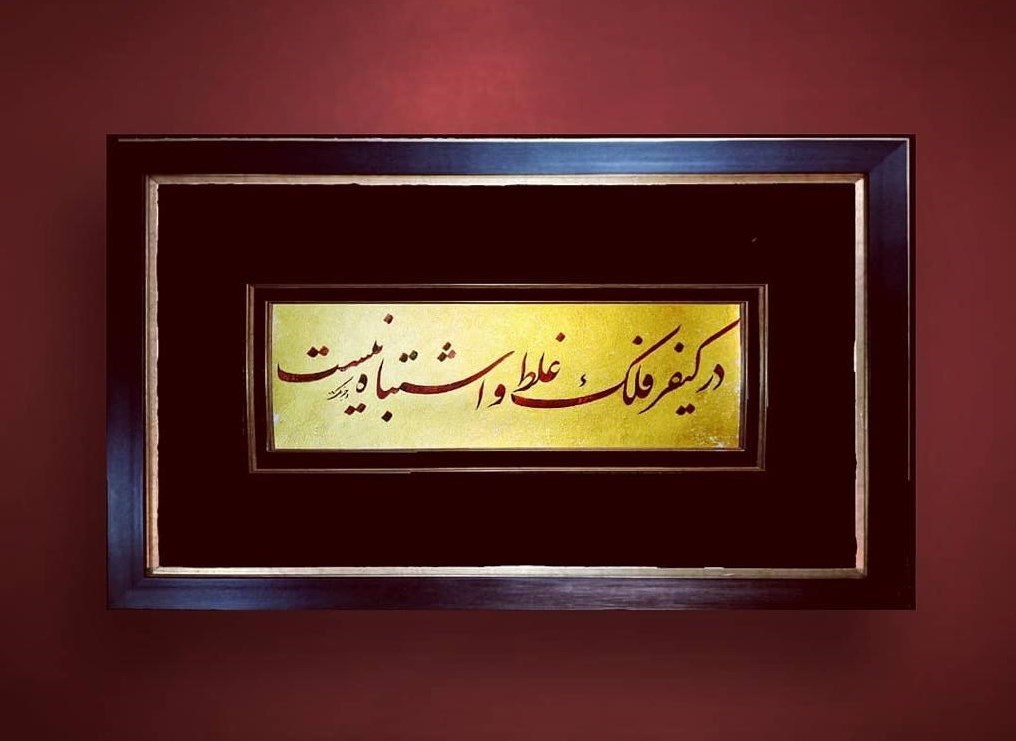 در کیفر فلک غلط و اشتباه نیست